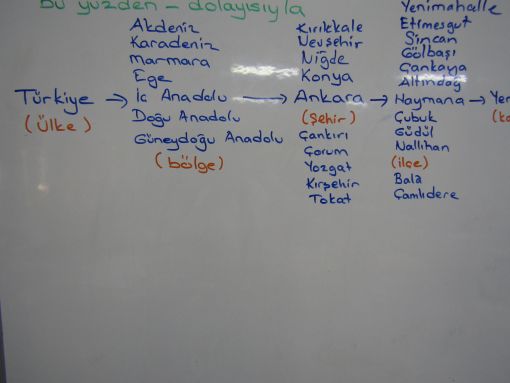 Bu yüzden - dolayısıyla
Akdeniz
Karadeniz
Marmara
Ege
Türkiye → İç Anadolu → Ankara → Haymana →
(Ülke)
Doğu Anadolu
Güneydoğu Anadolu
(bölge)
Kırıkkale
Nevşehir
Niğde
Konya
(Şehir)
Çankırı
Çorum
Yozgat
Kırşehir
Tokat
Yenimahalle
Etimesgut
Sincan
Gölbaşı
Çankaya
Altındağ
Çubuk
Güdül
Nallıhan
(ilçe)
Bala
Çamlıdere